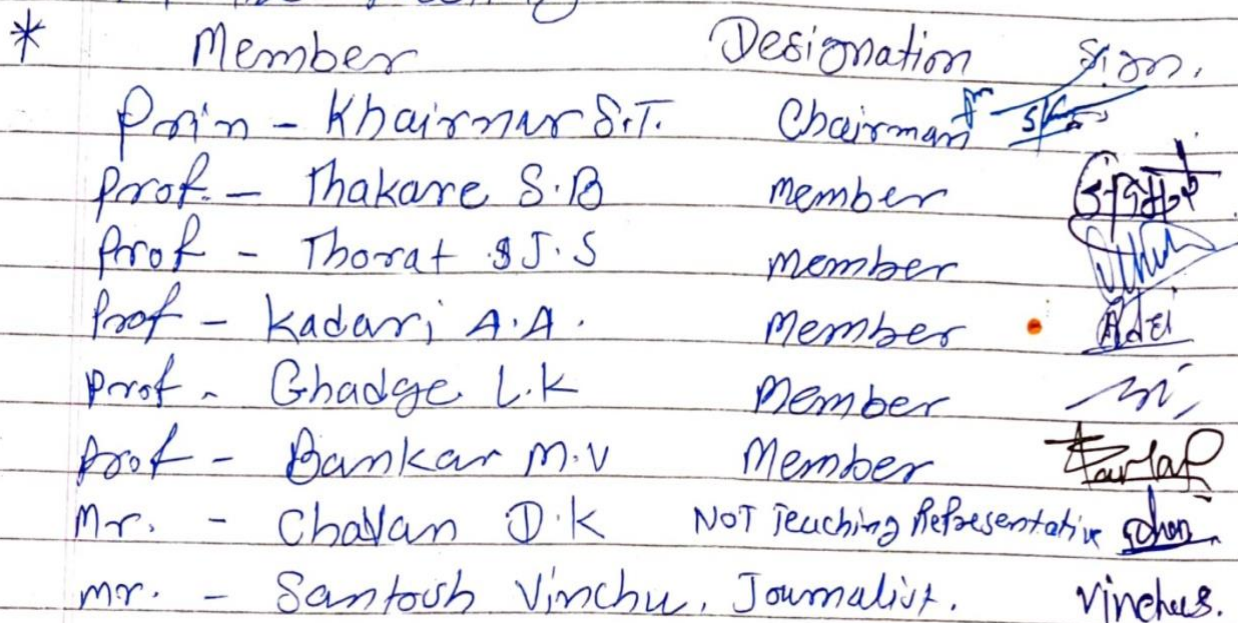 * Member Designation Sign.
Prin - Khairnar S.T. Chairman
Prof. - Thakare S.B member
Prof - Thorat J.S member
Prof - Kadari A.A. Member
Prof - Ghadge L.K Member
Prof - Bankar M.V Member
Mr. - Chavan D.K NOT Teaching Representative
Mr. - Santosh Vinchu, Journalist. Vinchus.